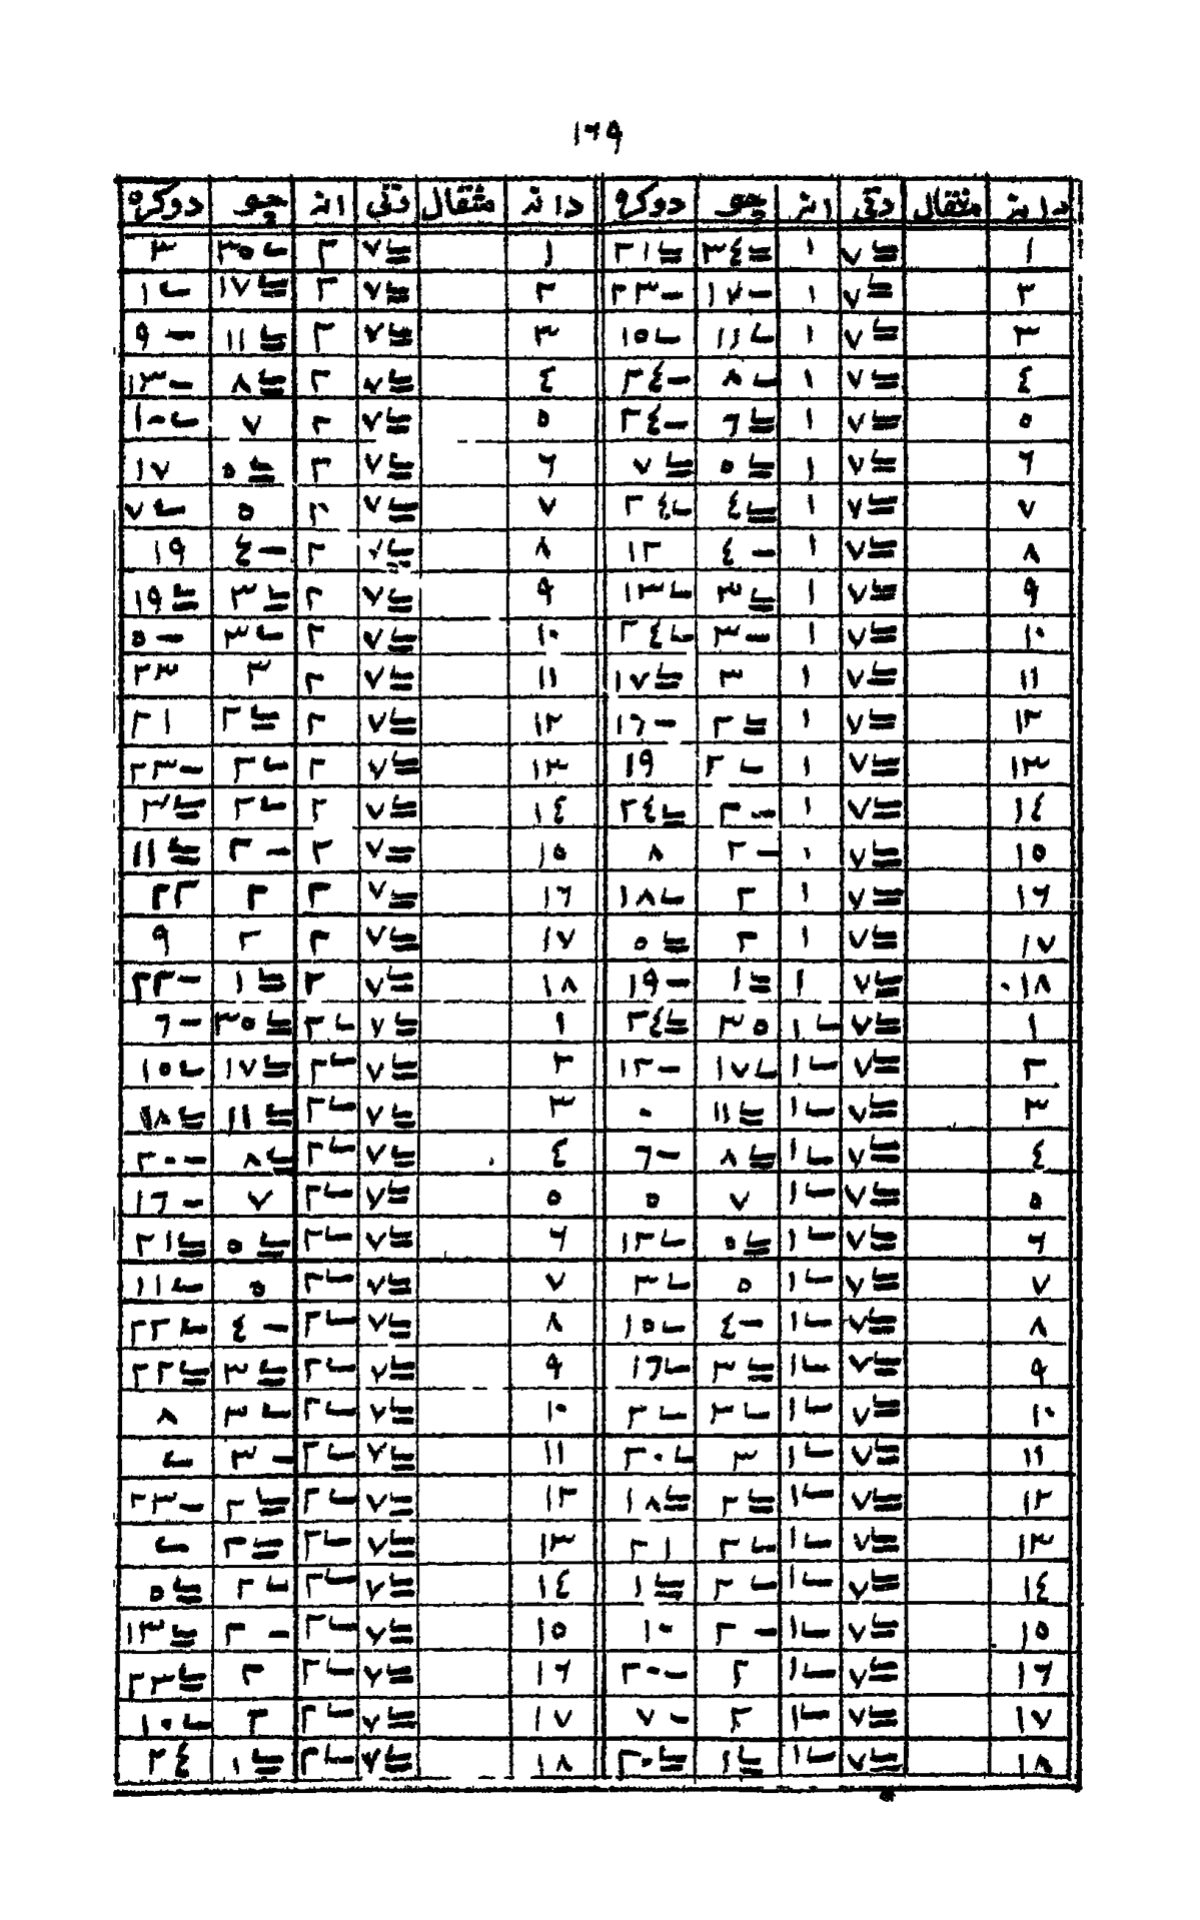 ١٦٩
دانه مثقال رتی انه چو دوکره دانه مثقال رتی انه چو دوکره
١ ٧ ١ ٣٤ ٢١ ١ ٧ ٢ ٣٥ ٣
٢ ٧ ١ ١٧- ٢٣- ٢ ٧ ٢ ١٧ ١
٣ ٧ ١ ١١ ١٥ ٣ ٧ ٢ ١١ ٩-
٤ ٧ ١ ٨ ٢٤- ٤ ٧ ٢ ٨ ١٣-
٥ ٧ ١ ٦ ٢٤- ٥ ٧ ٢ ٧ ١٠
٦ ٧ ١ ٥ ٧ ٦ ٧ ٢ ٥ ١٧
٧ ٧ ١ ٤ ٢٤ ٧ ٧ ٢ ٥ ٧
٨ ٧ ١ ٤- ١٢ ٨ ٧ ٢ ٤- ١٩
٩ ٧ ١ ٣ ١٣ ٩ ٧ ٢ ٣ ١٩
١٠ ٧ ١ ٣- ٢٤ ١٠ ٧ ٢ ٣ ٥-
١١ ٧ ١ ٣ ١٧ ١١ ٧ ٢ ٣ ٢٣
١٢ ٧ ١ ٢ ١٦- ١٢ ٧ ٢ ٢ ٢١
١٣ ٧ ١ ٢ ١٩ ١٣ ٧ ٢ ٢ ٢٣-
١٤ ٧ ١ ٢- ٢٤ ١٤ ٧ ٢ ٢ ٣
١٥ ٧ ١ ٢- ٨ ١٥ ٧ ٢ ٢- ١١
١٦ ٧ ١ ٢ ١٨ ١٦ ٧ ٢ ٢ ٢٢
١٧ ٧ ١ ٢ ٥ ١٧ ٧ ٢ ٢ ٩
١٨ ٧ ١ ١ ١٩- ١٨ ٧ ٢ ١ ٢٢-
١ ٧ ١ ٣٥ ٢٤ ١ ٧ ٢ ٣٥ ٦-
٢ ٧ ١ ١٧ ١٢- ٢ ٧ ٢ ١٧ ١٥
٣ ٧ ١ ١١ ٠ ٣ ٧ ٢ ١١ ١٨
٤ ٧ ١ ٨ ٦- ٤ ٧ ٢ ٨ ٢٠-
٥ ٧ ١ ٧ ٥ ٥ ٧ ٢ ٧ ١٦-
٦ ٧ ١ ٥ ١٢ ٦ ٧ ٢ ٥ ٢١
٧ ٧ ١ ٥ ٣ ٧ ٧ ٢ ٥ ١١
٨ ٧ ١ ٤- ١٥ ٨ ٧ ٢ ٤- ٢٢
٩ ٧ ١ ٣ ١٦ ٩ ٧ ٢ ٣ ٢٢
١٠ ٧ ١ ٣ ٢ ١٠ ٧ ٢ ٣ ٨
١١ ٧ ١ ٣ ٢٠ ١١ ٧ ٢ ٣-
١٢ ٧ ١ ٢ ١٨ ١٢ ٧ ٢ ٢ ٢٣-
١٣ ٧ ١ ٢ ٢١ ١٣ ٧ ٢ ٢
١٤ ٧ ١ ٢ ١ ١٤ ٧ ٢ ٢ ٥
١٥ ٧ ١ ٢- ١٠ ١٥ ٧ ٢ ٢- ١٣
١٦ ٧ ١ ٢ ٢٠- ١٦ ٧ ٢ ٢ ٢٣
١٧ ٧ ١ ٢ ٧- ١٧ ٧ ٢ ٢ ١٠
١٨ ٧ ١ ١ ٢٠ ١٨ ٧ ٢ ١ ٢٤